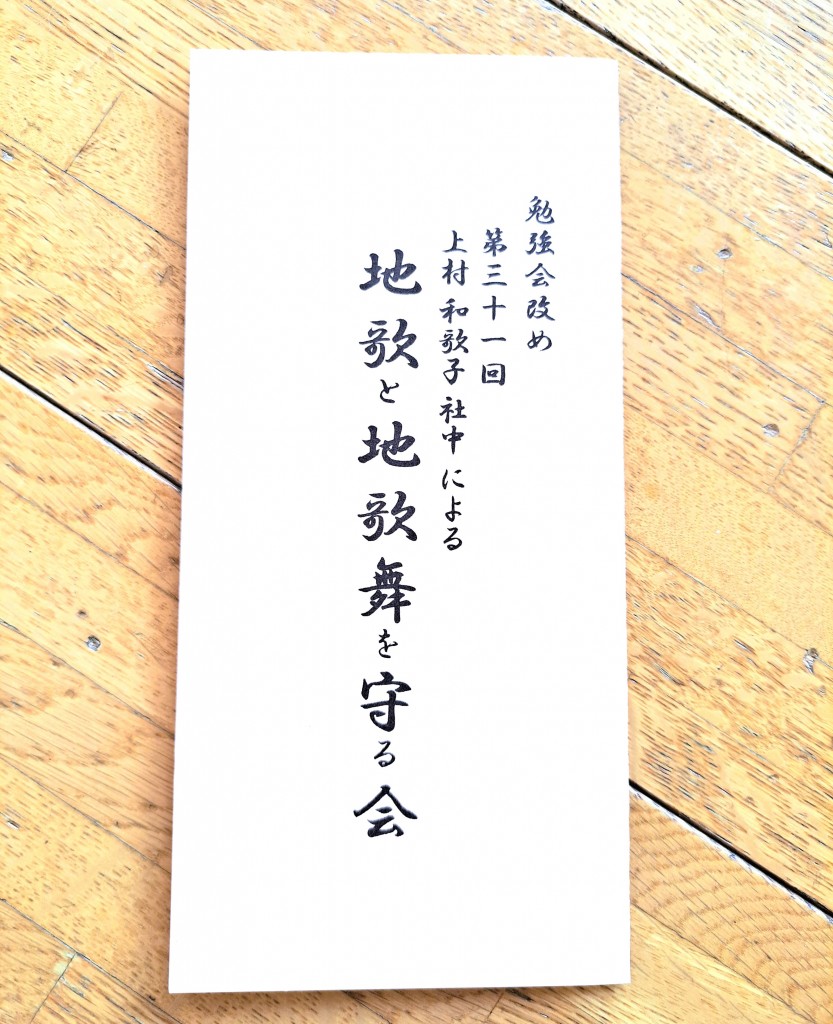 勉強会改め
第三十一回
上村 和歌子 社中 による
地歌と地歌舞を守る会